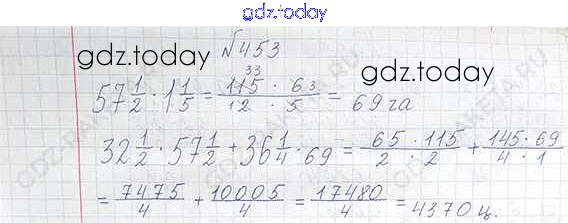 gdz.today
№453
gdz.today
gdz.today
57 1/2 · 1 1/5 = 115 · 6 3 / 12 · 5 = 69 га
32 1/2 · 57 1/2 + 36 1/4 · 69 = 65 · 115 / 2 · 2 + 145 · 69 / 4 · 1
= 7475/4 + 10005/4 = 17480/4 = 4370 ц.